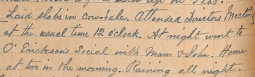 Laid slabs in cow bale. Attended Directors Meeting
at the usual time 12 O'clock. At night went to
O'Ericksen's Social with Mam & John. Home
at two in the morning. Raining all night.